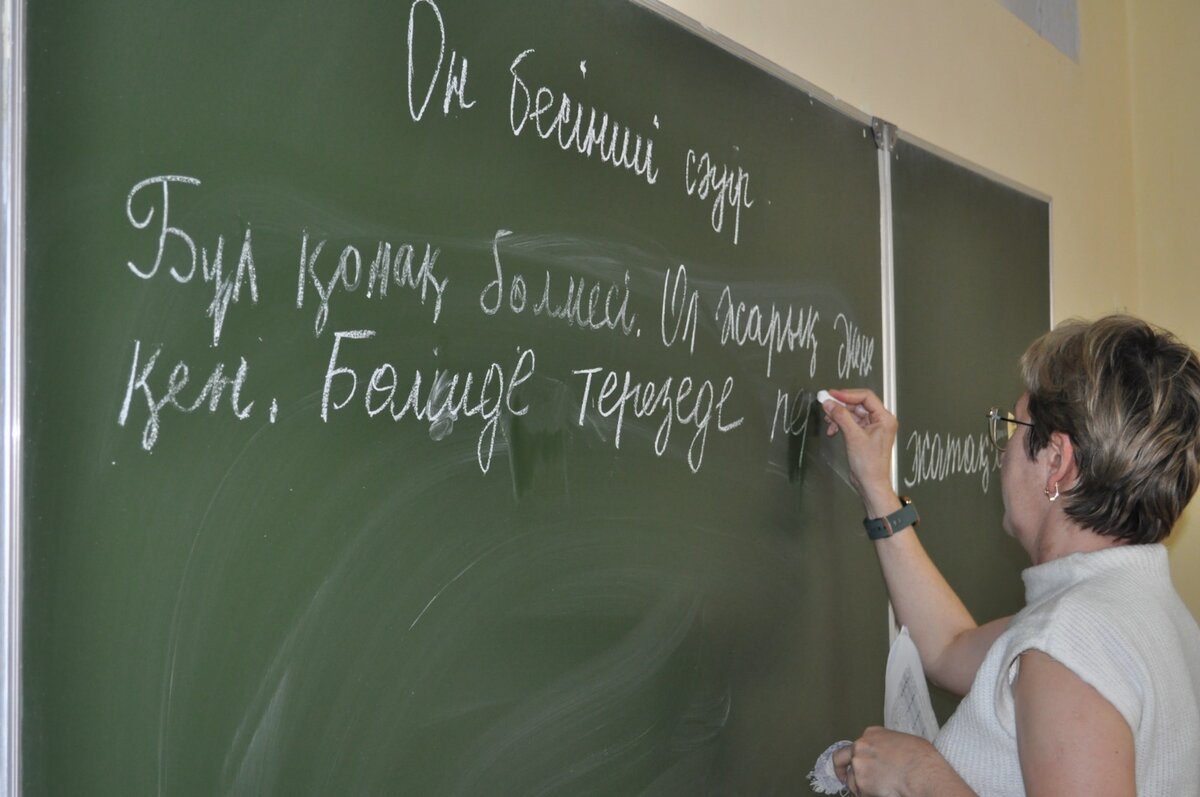 Он бесінші сәуір
Бұл қонақ бөлмесі. Ол жарық және
кең. Бөлмеде терезеде пер
жатақ